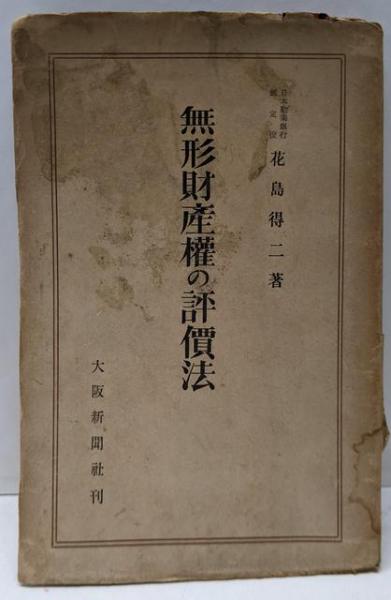 日本勧業銀行
鑑定役
花島得二著
無形財產權の評價法
大阪新聞社刊